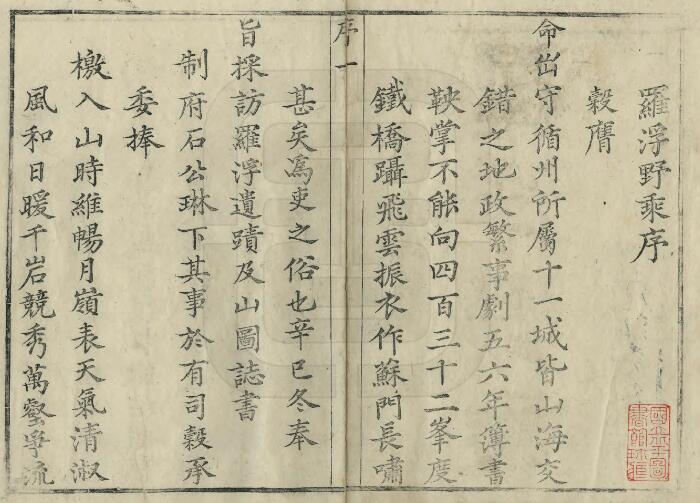 羅浮野乘序
穀膺
命出守循州所屬十一城皆山海交
錯之地政繁事劇五六年簿書
鞅掌不能向四百三十二峯度
鐵橋躡飛雲振衣作蘇門長嘯
序一
甚矣爲吏之俗也辛巳冬奉
旨採訪羅浮遺蹟及山圖誌書
制府石公琳下其事於有司穀承
委捧
檄入山時維暢月嶺表天氣清淑
風和日暖千岩競秀萬壑爭流